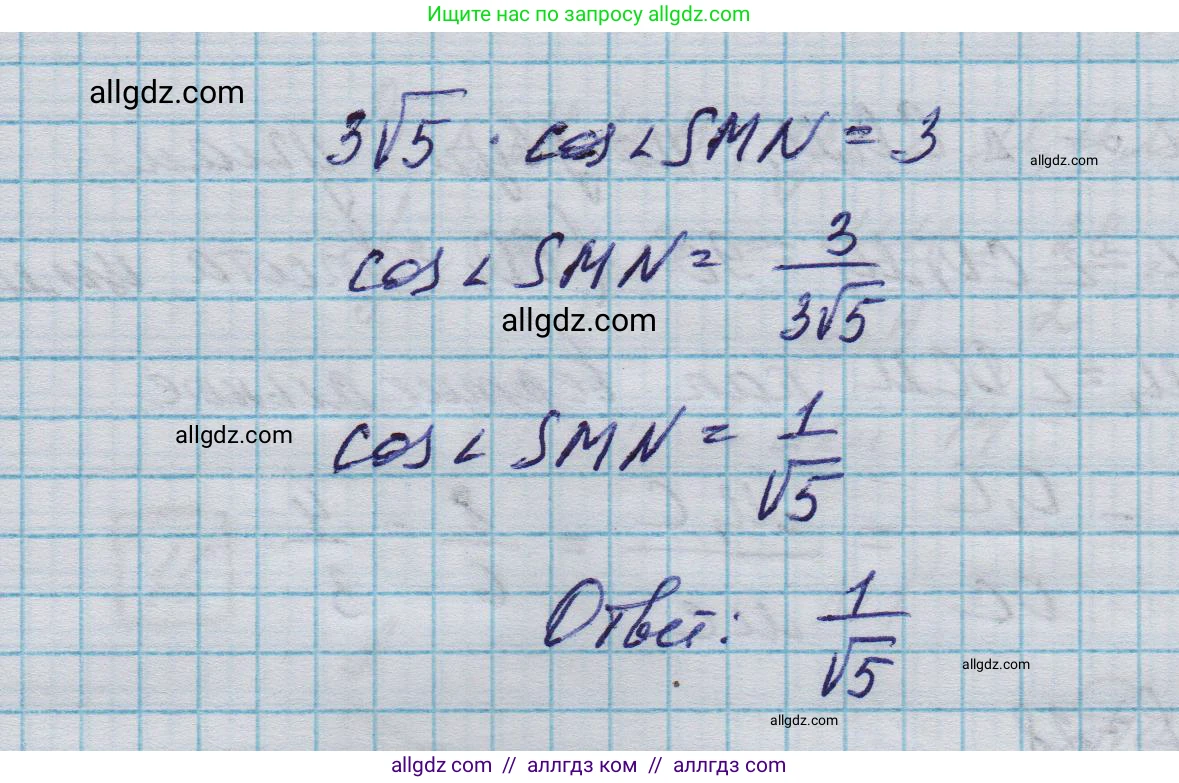 Ищите нас по запросу allgdz.com
allgdz.com
3√5 · cos∠SMN = 3
allgdz.com
cos∠SMN = 3/(3√5)
allgdz.com
allgdz.com
cos∠SMN = 1/√5
Ответ: 1/√5
allgdz.com
allgdz.com
allgdz.com // аллгдз ком // аллгдз com